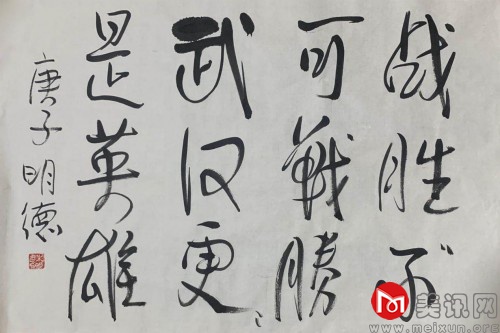 战胜不
可戰勝
武汉更
是英雄
庚子明德
美讯网
www.meixun.org